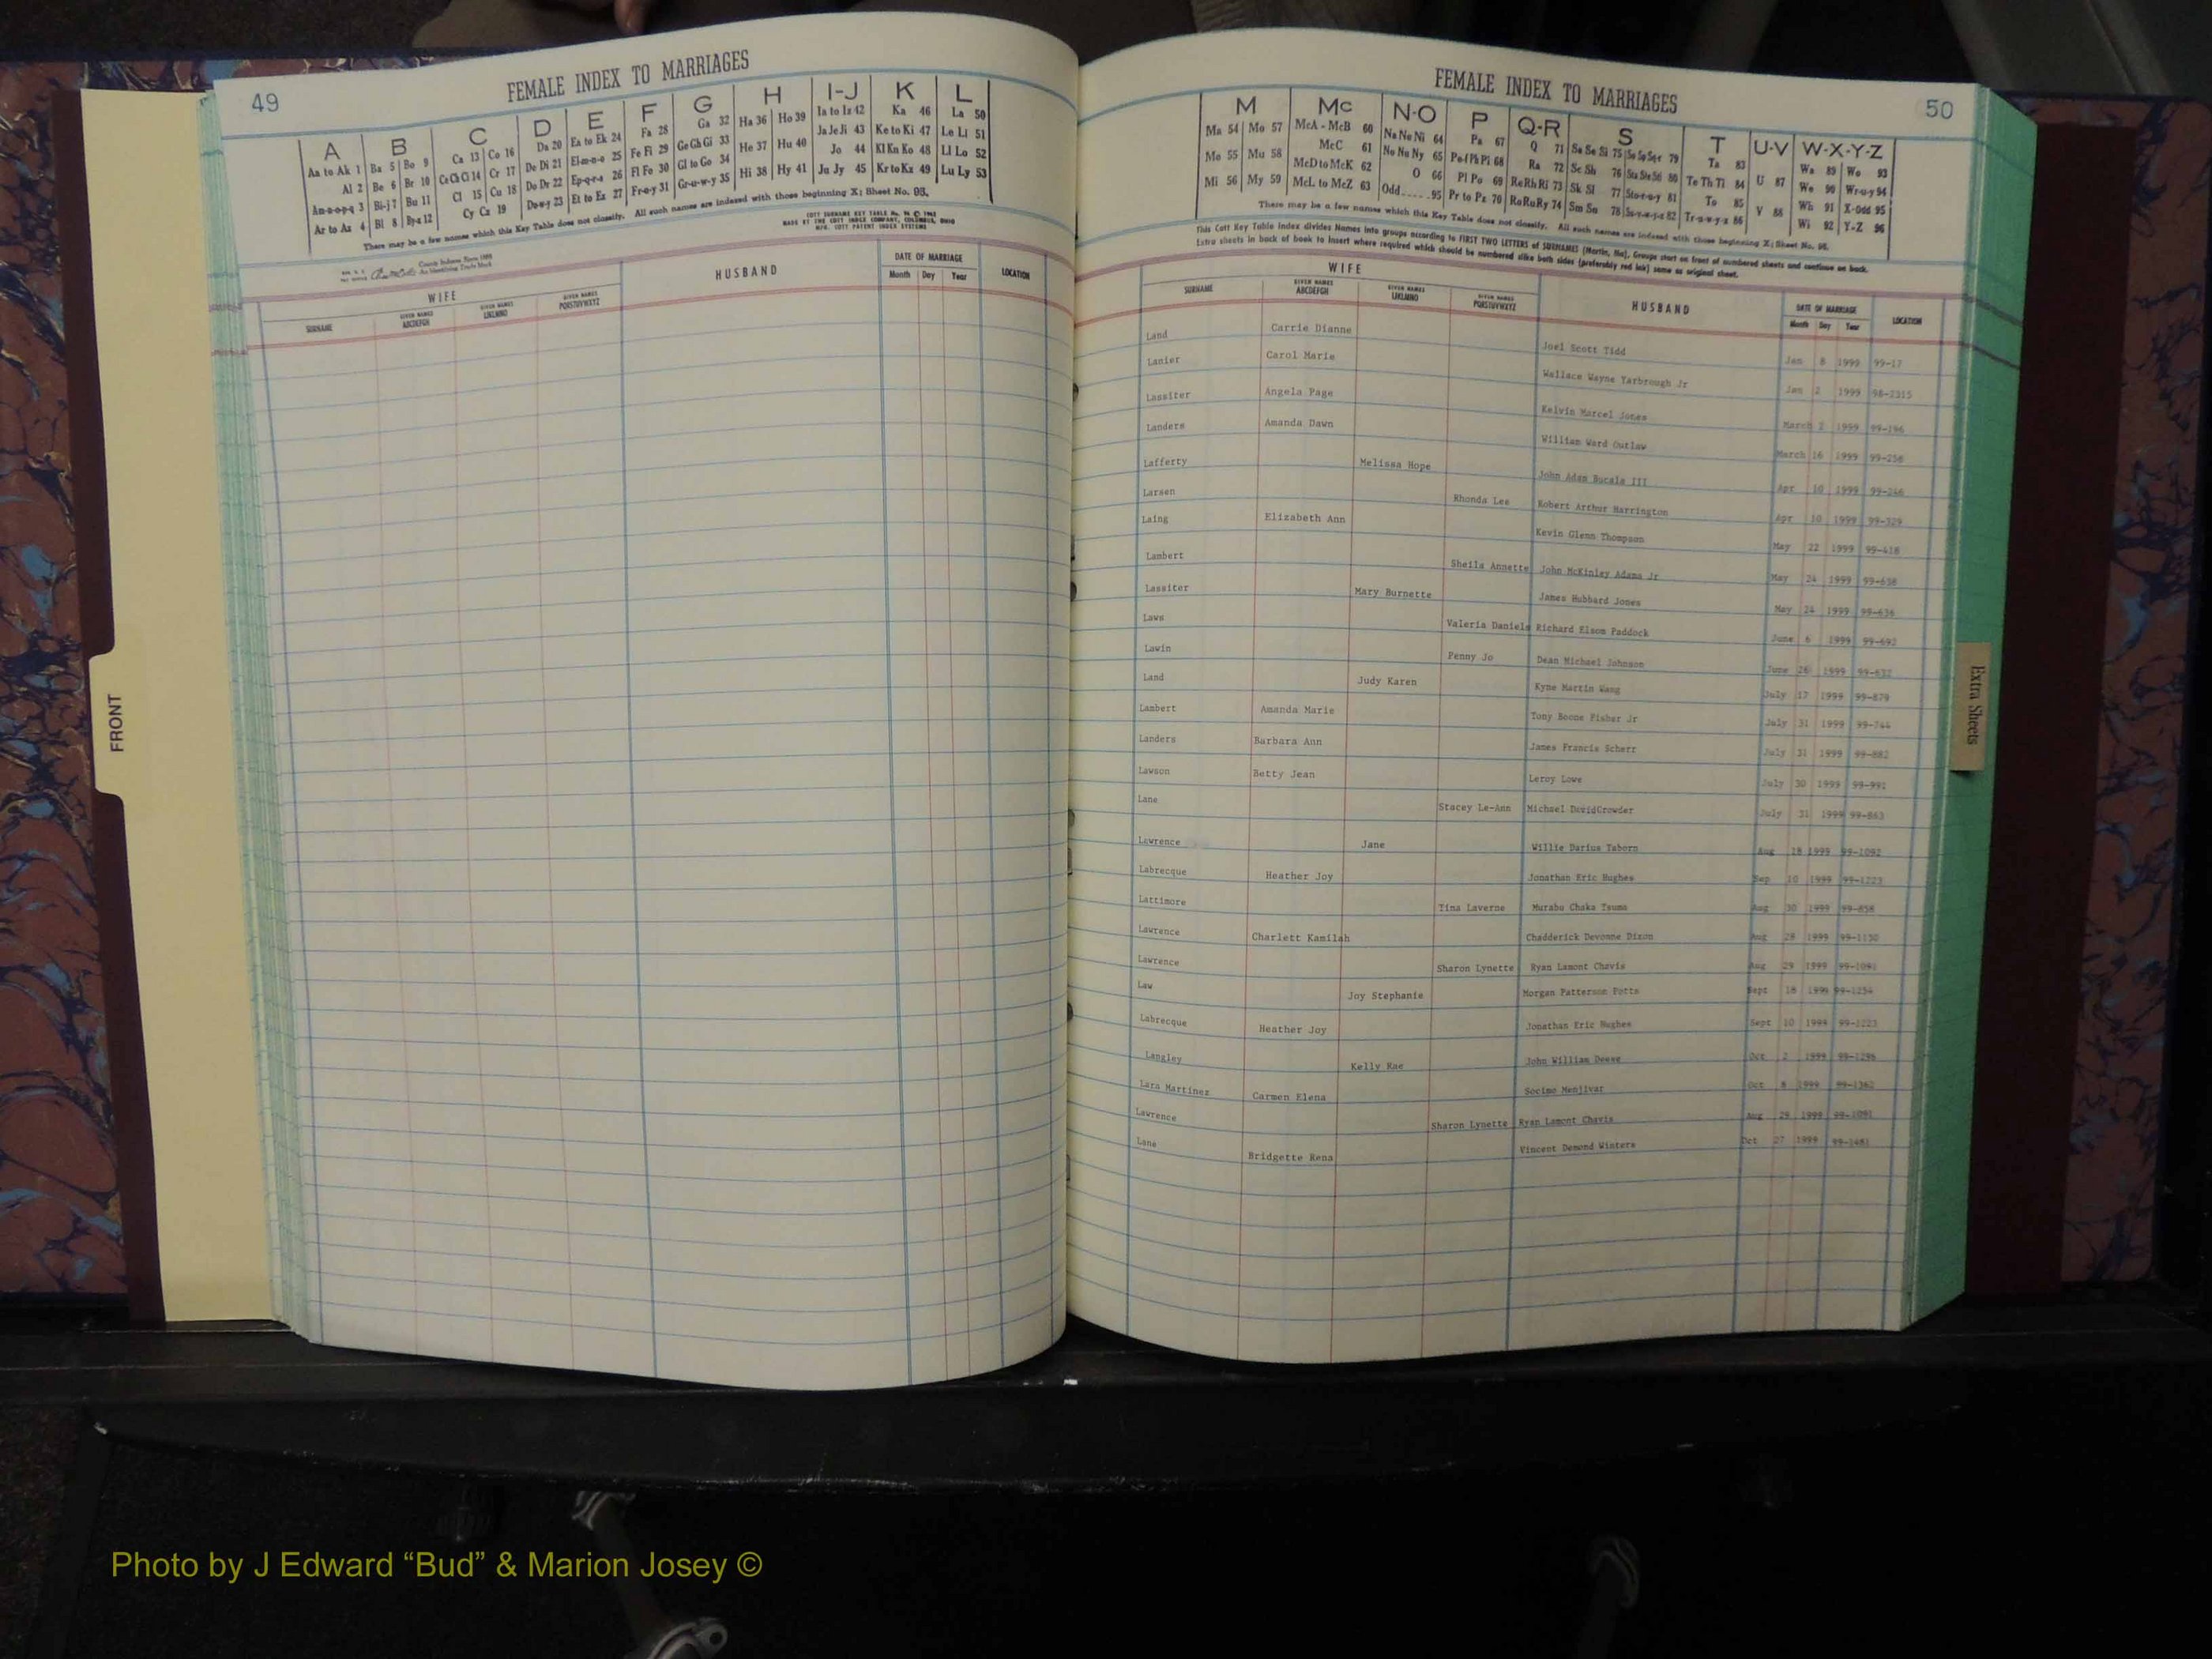 49
FEMALE INDEX TO MARRIAGES
A B C D E F G H I-J K L
Aa to Ak 1 Ba 5 Bo 9 Ca 13 Co 16 Da 20 Ea to Ek 24 Fa 28 Ga 32 Ha 36 Ho 39 Ia to Iz 42 Ka 46 La 50
Al 2 Be 6 Br 10 Ce Ch Ci 14 Cr 17 De Di 21 El-m-n-o 25 Fe Fi 29 Ge Gh Gi 33 He 37 Hu 40 Ja Je Ji 43 Ke to Ki 47 Le Li 51
Am-n-o-p-q 3 Bi-j 7 Bu 11 Cl 15 Cu 18 Do Dr 22 Ep-q-r-s 26 Fl Fo 30 Gl to Go 34 Hi 38 Hy 41 Jo 44 Kl Kn Ko 48 Ll Lo 52
Ar to Az 4 Bl 8 By-z 12 Cy Cz 19 Du-w-y 23 Et to Ez 27 Fr-u-y 31 Gr-u-w-y 35 Ju Jy 45 Kr to Kz 49 Lu Ly 53
There may be a few names which this Key Table does not classify. All such names are indexed with those beginning X; Sheet No. 95.
MADE BY THE COTT INDEX COMPANY, COLUMBUS, OHIO
MFG. COTT PATENT INDEX SYSTEMS
WIFE HUSBAND DATE OF MARRIAGE LOCATION
SURNAME GIVEN NAMES ABCDEFGH GIVEN NAMES IJKLMNO GIVEN NAMES PQRSTUVWXYZ Month Day Year
FRONT
FEMALE INDEX TO MARRIAGES
50
M Mc N-O P Q-R S T U-V W-X-Y-Z
Ma 54 Mo 57 McA - McB 60 Na Ne Ni 64 Pa 67 Q 71 Ta 83 Wa 89 Wo 93
Me 55 Mu 58 McC 61 No Nu Ny 65 Pe-f Ph Pi 68 Ra 72 Sc Sh 76 Te Th Ti 84 U 87 We 90 Wr-u-y 94
Mi 56 My 59 McD to McK 62 O 66 Pl Po 69 Re Rh Ri 73 Sk Sl 77 To 85 V 88 Wh 91 X-Odd 95
McL to McZ 63 Odd 95 Pr to Pz 70 Ro Ru Ry 74 Sm Sn 78 Tr-u-w-y-z 86 Wi 92 Y-Z 96
There may be a few names which this Key Table does not classify. All such names are indexed with those beginning X; Sheet No. 95.
This Cott Key Table Index divides Names into groups according to FIRST TWO LETTERS of SURNAMES (Martin, Ma). Groups start on front of numbered sheets and continue on back.
Extra sheets in back of book to insert where required which should be numbered alike both sides (preferably red ink) same as original sheet.
WIFE HUSBAND DATE OF MARRIAGE LOCATION
SURNAME GIVEN NAMES ABCDEFGH GIVEN NAMES IJKLMNO GIVEN NAMES PQRSTUVWXYZ Month Day Year
Land Carrie Dianne Joel Scott Tidd Jan 8 1999 99-17
Lanier Carol Marie Wallace Wayne Yarbrough Jr Jan 2 1999 98-2315
Lassiter Angela Page Kelvin Marcel Jones March 2 1999 99-196
Landers Amanda Dawn William Ward Outlaw March 16 1999 99-256
Lafferty Melissa Hope John Adam Bucala III Apr 10 1999 99-246
Larsen Rhonda Lee Robert Arthur Harrington Apr 10 1999 99-329
Laing Elizabeth Ann Kevin Glenn Thompson May 22 1999 99-418
Lambert Sheila Annette John McKinley Adams Jr May 24 1999 99-638
Lassiter Mary Burnette James Hubbard Jones May 24 1999 99-636
Laws Valeria Daniels Richard Elsom Paddock June 6 1999 99-692
Lawin Penny Jo Dean Michael Johnson June 26 1999 99-632
Land Judy Karen Kyne Martin Wang July 17 1999 99-879
Lambert Amanda Marie Tony Boone Fisher Jr July 31 1999 99-744
Landers Barbara Ann James Francis Scherr July 31 1999 99-882
Lawson Betty Jean Leroy Lowe July 30 1999 99-991
Lane Stacey Le-Ann Michael DavidCrowder July 31 1999 99-863
Lawrence Jane Willie Darius Taborn Aug 28 1999 99-1092
Labrecque Heather Joy Jonathan Eric Hughes Sep 10 1999 99-1223
Lattimore Tina Laverne Murabu Chaka Tsuma Aug 30 1999 99-858
Lawrence Charlett Kamilah Chadderick Devonne Dixon Aug 28 1999 99-1130
Lawrence Sharon Lynette Ryan Lamont Chavis Aug 29 1999 99-1091
Law Joy Stephanie Morgan Patterson Potts Sept 18 1999 99-1254
Labrecque Heather Joy Jonathan Eric Hughes Sept 10 1999 99-1223
Langley Kelly Rae John William Deese Oct 2 1999 99-1296
Lara Martinez Carmen Elena Socimo Menjivar Oct 8 1999 99-1362
Lawrence Sharon Lynette Ryan Lamont Chavis Aug 29 1999 99-1091
Lane Bridgette Rena Vincent Demond Winters Oct 27 1999 99-1461
Extra Sheets
Photo by J Edward “Bud” & Marion Josey ©